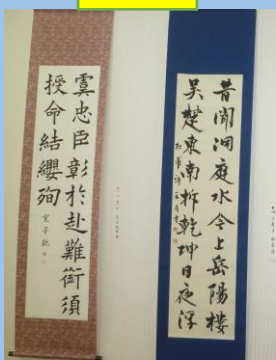 昔聞洞庭水今上岳陽樓
吳楚東南坼乾坤日夜浮
虞忠臣彰於赴難銜須
授命結纓殉